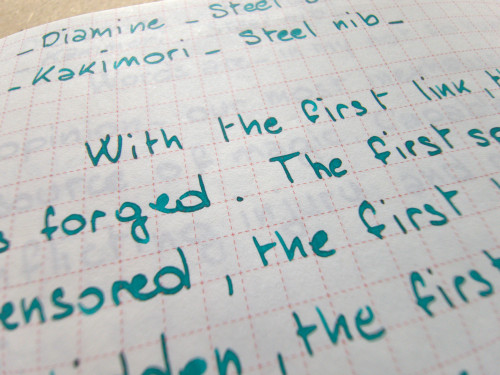 - Diamine - Steel
- Kakimori - Steel nib -
With the first link, t
s forged. The first s
ensored, the first
idden, the first